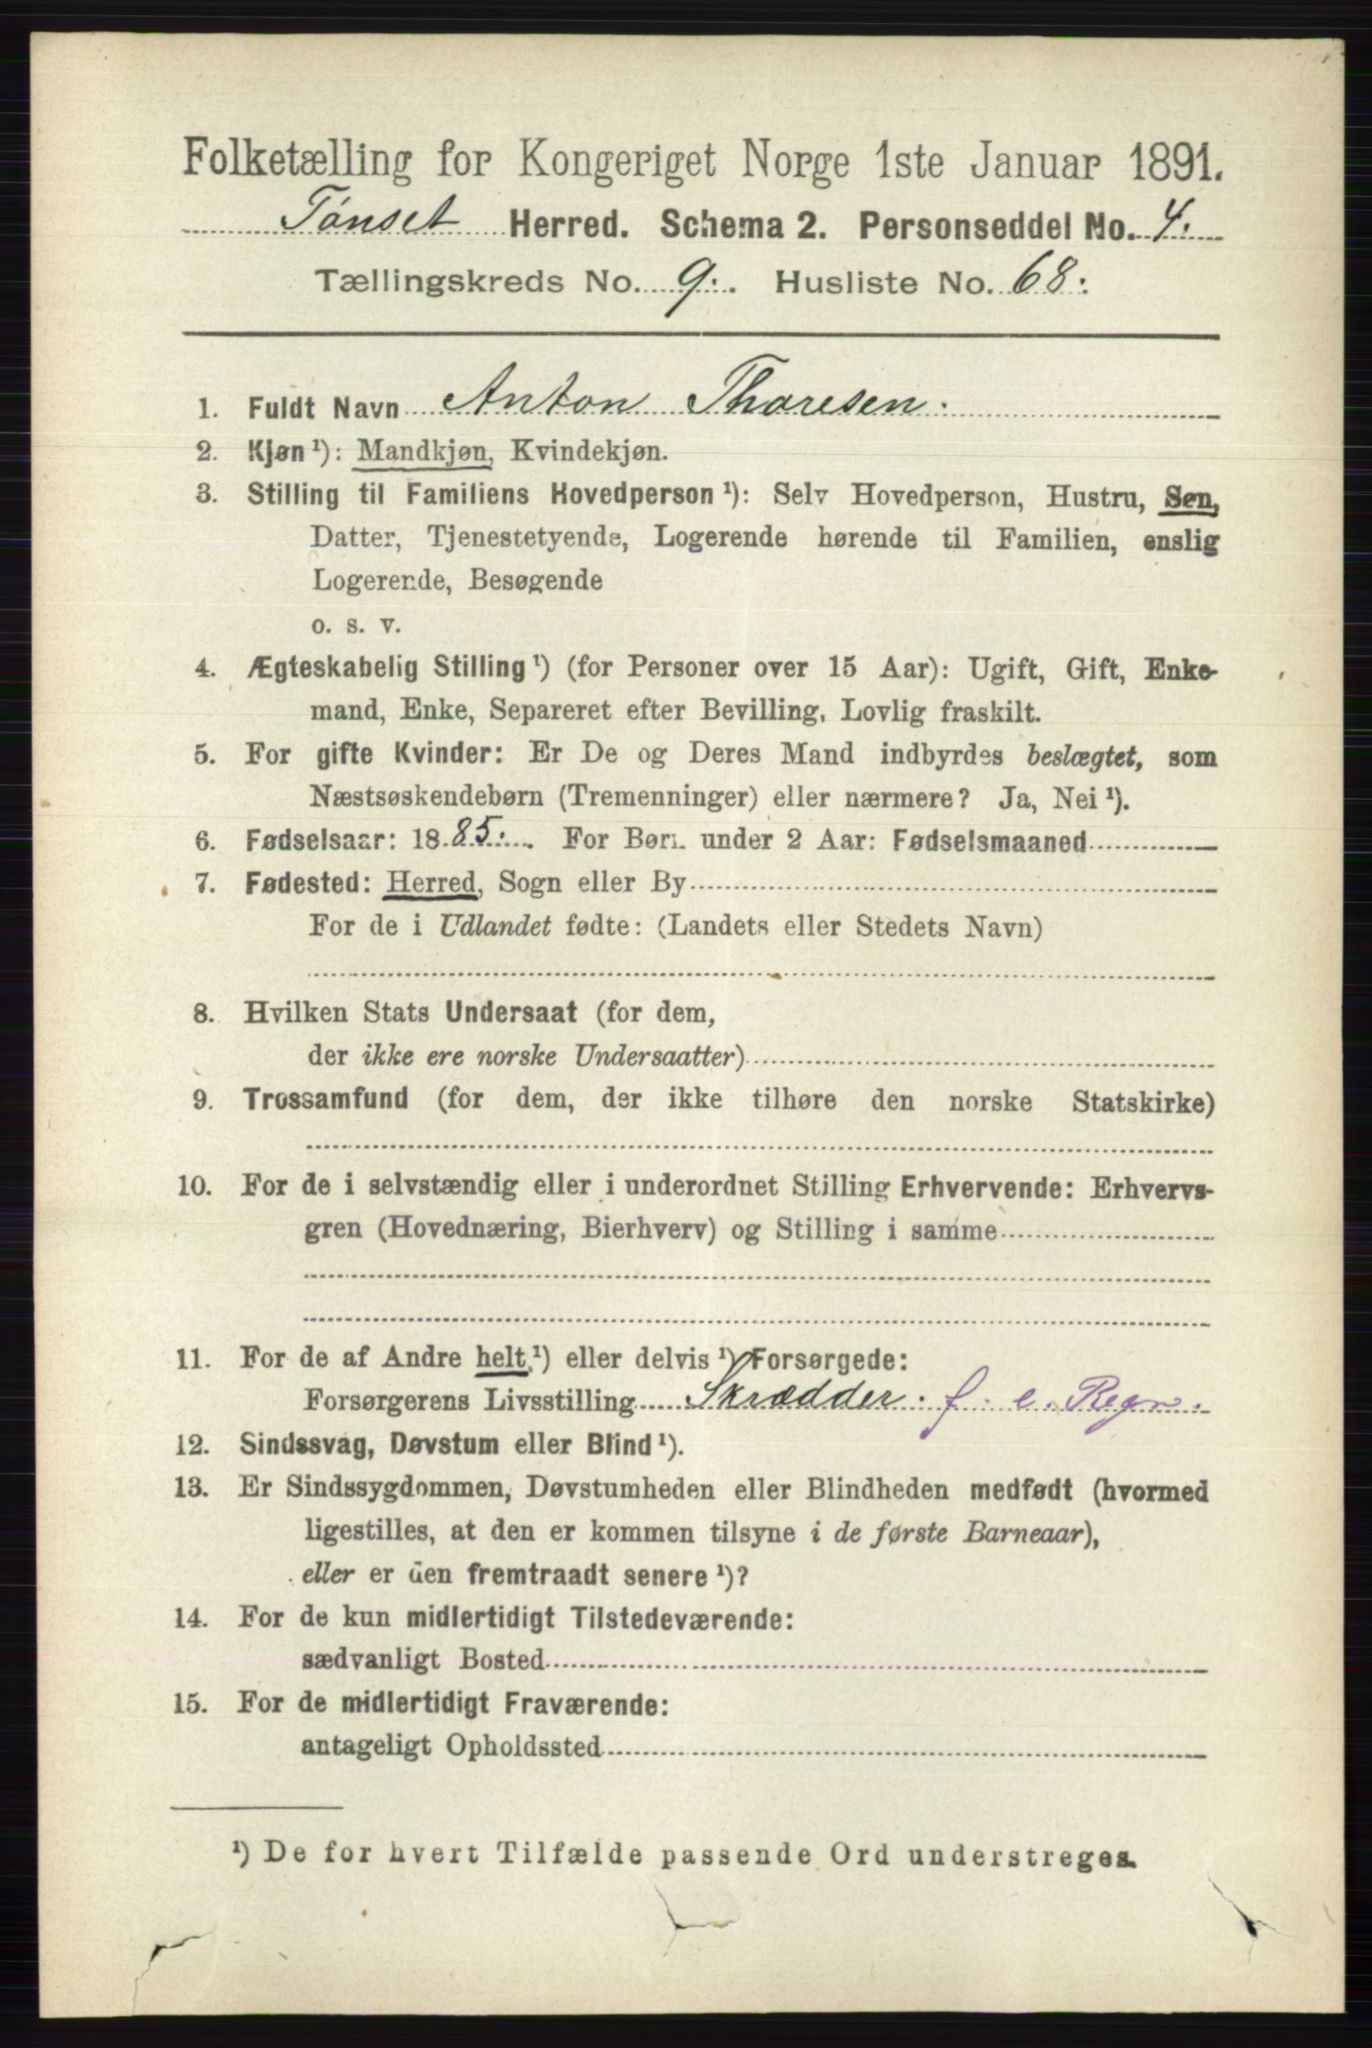 Folketælling for Kongeriget Norge 1ste Januar 1891.
Tönset Herred. Schema 2. Personseddel No. 4.
Tællingskreds No. 9. Husliste No. 68.
1. Fuldt Navn Anton Thoresen.
2. Kjøn ¹): Mandkjøn, Kvindekjøn.
3. Stilling til Familiens Hovedperson ¹): Selv Hovedperson, Hustru, Søn,
Datter, Tjenestetyende, Logerende hørende til Familien, enslig
Logerende, Besøgende
o. s. v.
4. Ægteskabelig Stilling ¹) (for Personer over 15 Aar): Ugift, Gift, Enke-
mand, Enke, Separeret efter Bevilling, Lovlig fraskilt.
5. For gifte Kvinder: Er De og Deres Mand indbyrdes beslægtet, som
Næstsøskendebørn (Tremenninger) eller nærmere? Ja, Nei ¹).
6. Fødselsaar: 1885. For Børn under 2 Aar: Fødselsmaaned
7. Fødested: Herred, Sogn eller By
For de i Udlandet fødte: (Landets eller Stedets Navn)
8. Hvilken Stats Undersaat (for dem,
der ikke ere norske Undersaatter)
9. Trossamfund (for dem, der ikke tilhøre den norske Statskirke)
10. For de i selvstændig eller i underordnet Stilling Erhvervende: Erhvervs-
gren (Hovednæring, Bierhverv) og Stilling i samme
11. For de af Andre helt ¹) eller delvis ¹) Forsørgede:
Forsørgerens Livsstilling Skrædder. f. e. Regn.
12. Sindssvag, Døvstum eller Blind ¹).
13. Er Sindssygdommen, Døvstumheden eller Blindheden medfødt (hvormed
ligestilles, at den er kommen tilsyne i de første Barneaar),
eller er den fremtraadt senere ¹)?
14. For de kun midlertidigt Tilstedeværende:
sædvanligt Bosted
15. For de midlertidigt Fraværende:
antageligt Opholdssted
¹) De for hvert Tilfælde passende Ord understreges.